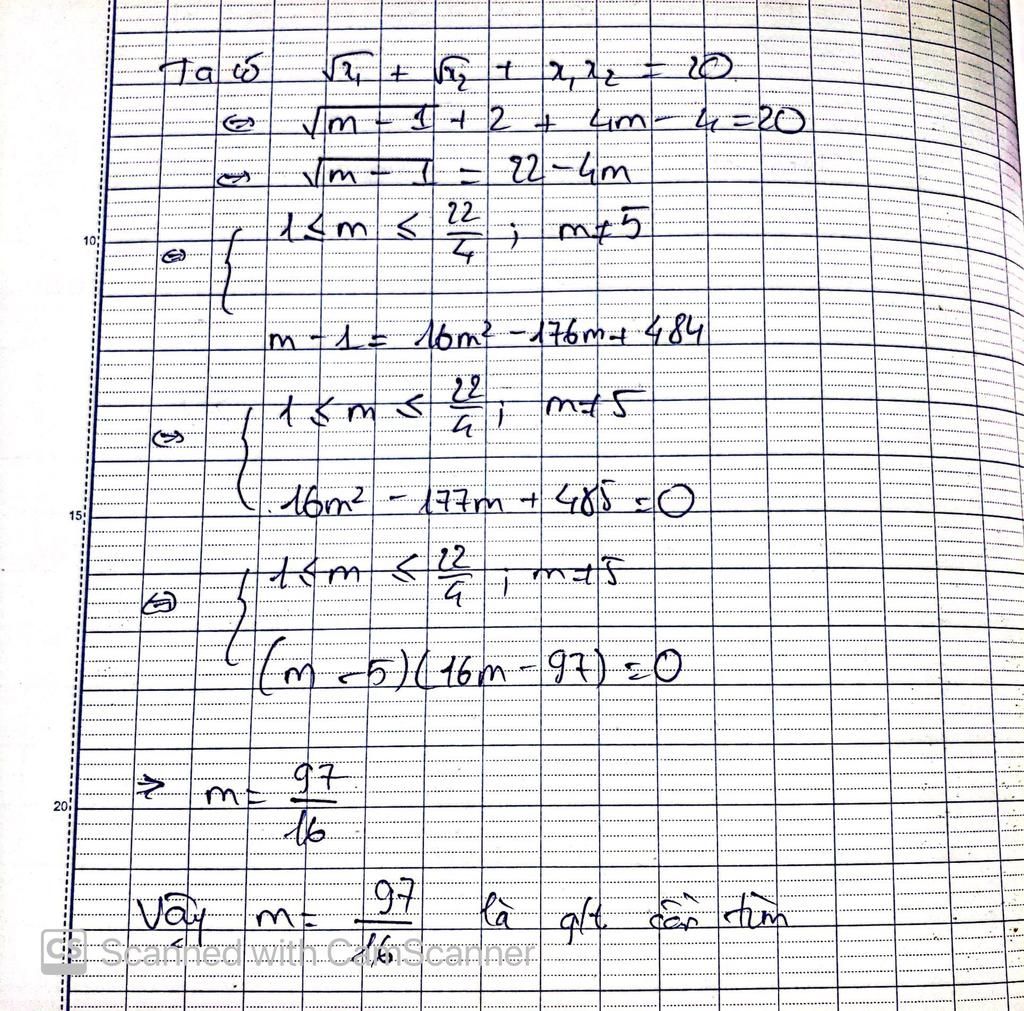 Ta có √x₁ + √x₂ + x₁x₂ = 20
⇔ √(m - 1) + 2 + 4m - 4 = 20
⇔ √(m - 1) = 22 - 4m
10
⇔ { 1 ≤ m ≤ 22/4 ; m ≠ 5
m - 1 = 16m² - 176m + 484
⇔ { 1 ≤ m ≤ 22/4 ; m ≠ 5
15
16m² - 177m + 485 = 0
⇔ { 1 ≤ m ≤ 22/4 ; m ≠ 5
(m - 5)(16m - 97) = 0
20
⇒ m = 97/16
Vậy m = 97/16 là g/t cần tìm
CS Scanned with CamScanner